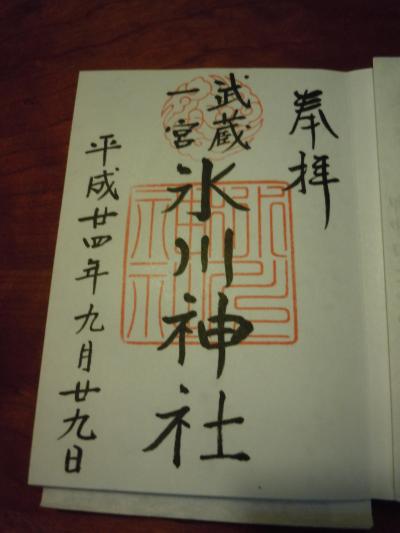 奉拝
武蔵
一宮
氷川神社
平成廿四年九月廿九日